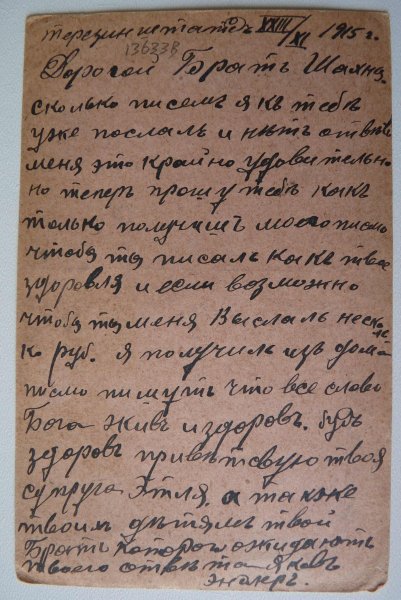 терезинштатъ XXIII/XI 1915 г.
13633В
Дорогой Братъ Шахна.
сколько писемъ я къ тебѣ
уже послалъ и нѣтъ отвѣта
меня это крайно удовительно
но теперъ прошу тебѣ какъ
только получишъ моо писмо
чтобы ты писалъ какъ твое
здоровля и если возможно
чтобы ты меня Выслалъ несколь
ко руб. я получилъ изъ дома
писмо пишутъ что все слово
Бога живъ и здоровъ. будь
здоровъ приветсвую твоя
супруга Этля, а также
твоимъ дѣтямъ твой
Братъ которого ожидаютъ
твоего ответа Яковъ